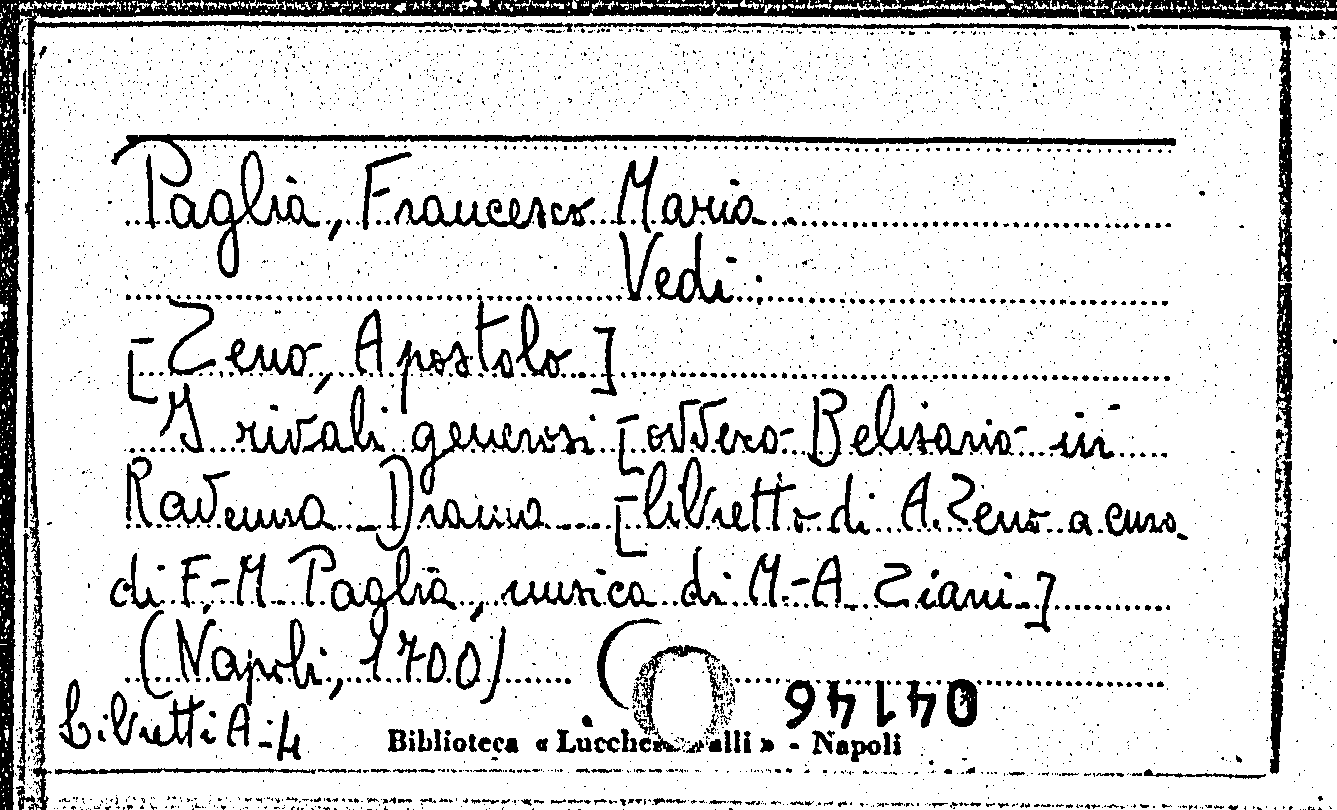 Paglia, Francesco Maria.
Vedi:
[Zeno, Apostolo]
I rivali generosi [ovvero Belisario in
Ravenna - Drama - [libretto di A. Zeno a cura
di F.-M. Paglia, musica di M.-A. Ziani]
(Napoli, 1700)
04146
Libretti A-4
Biblioteca « - Napoli